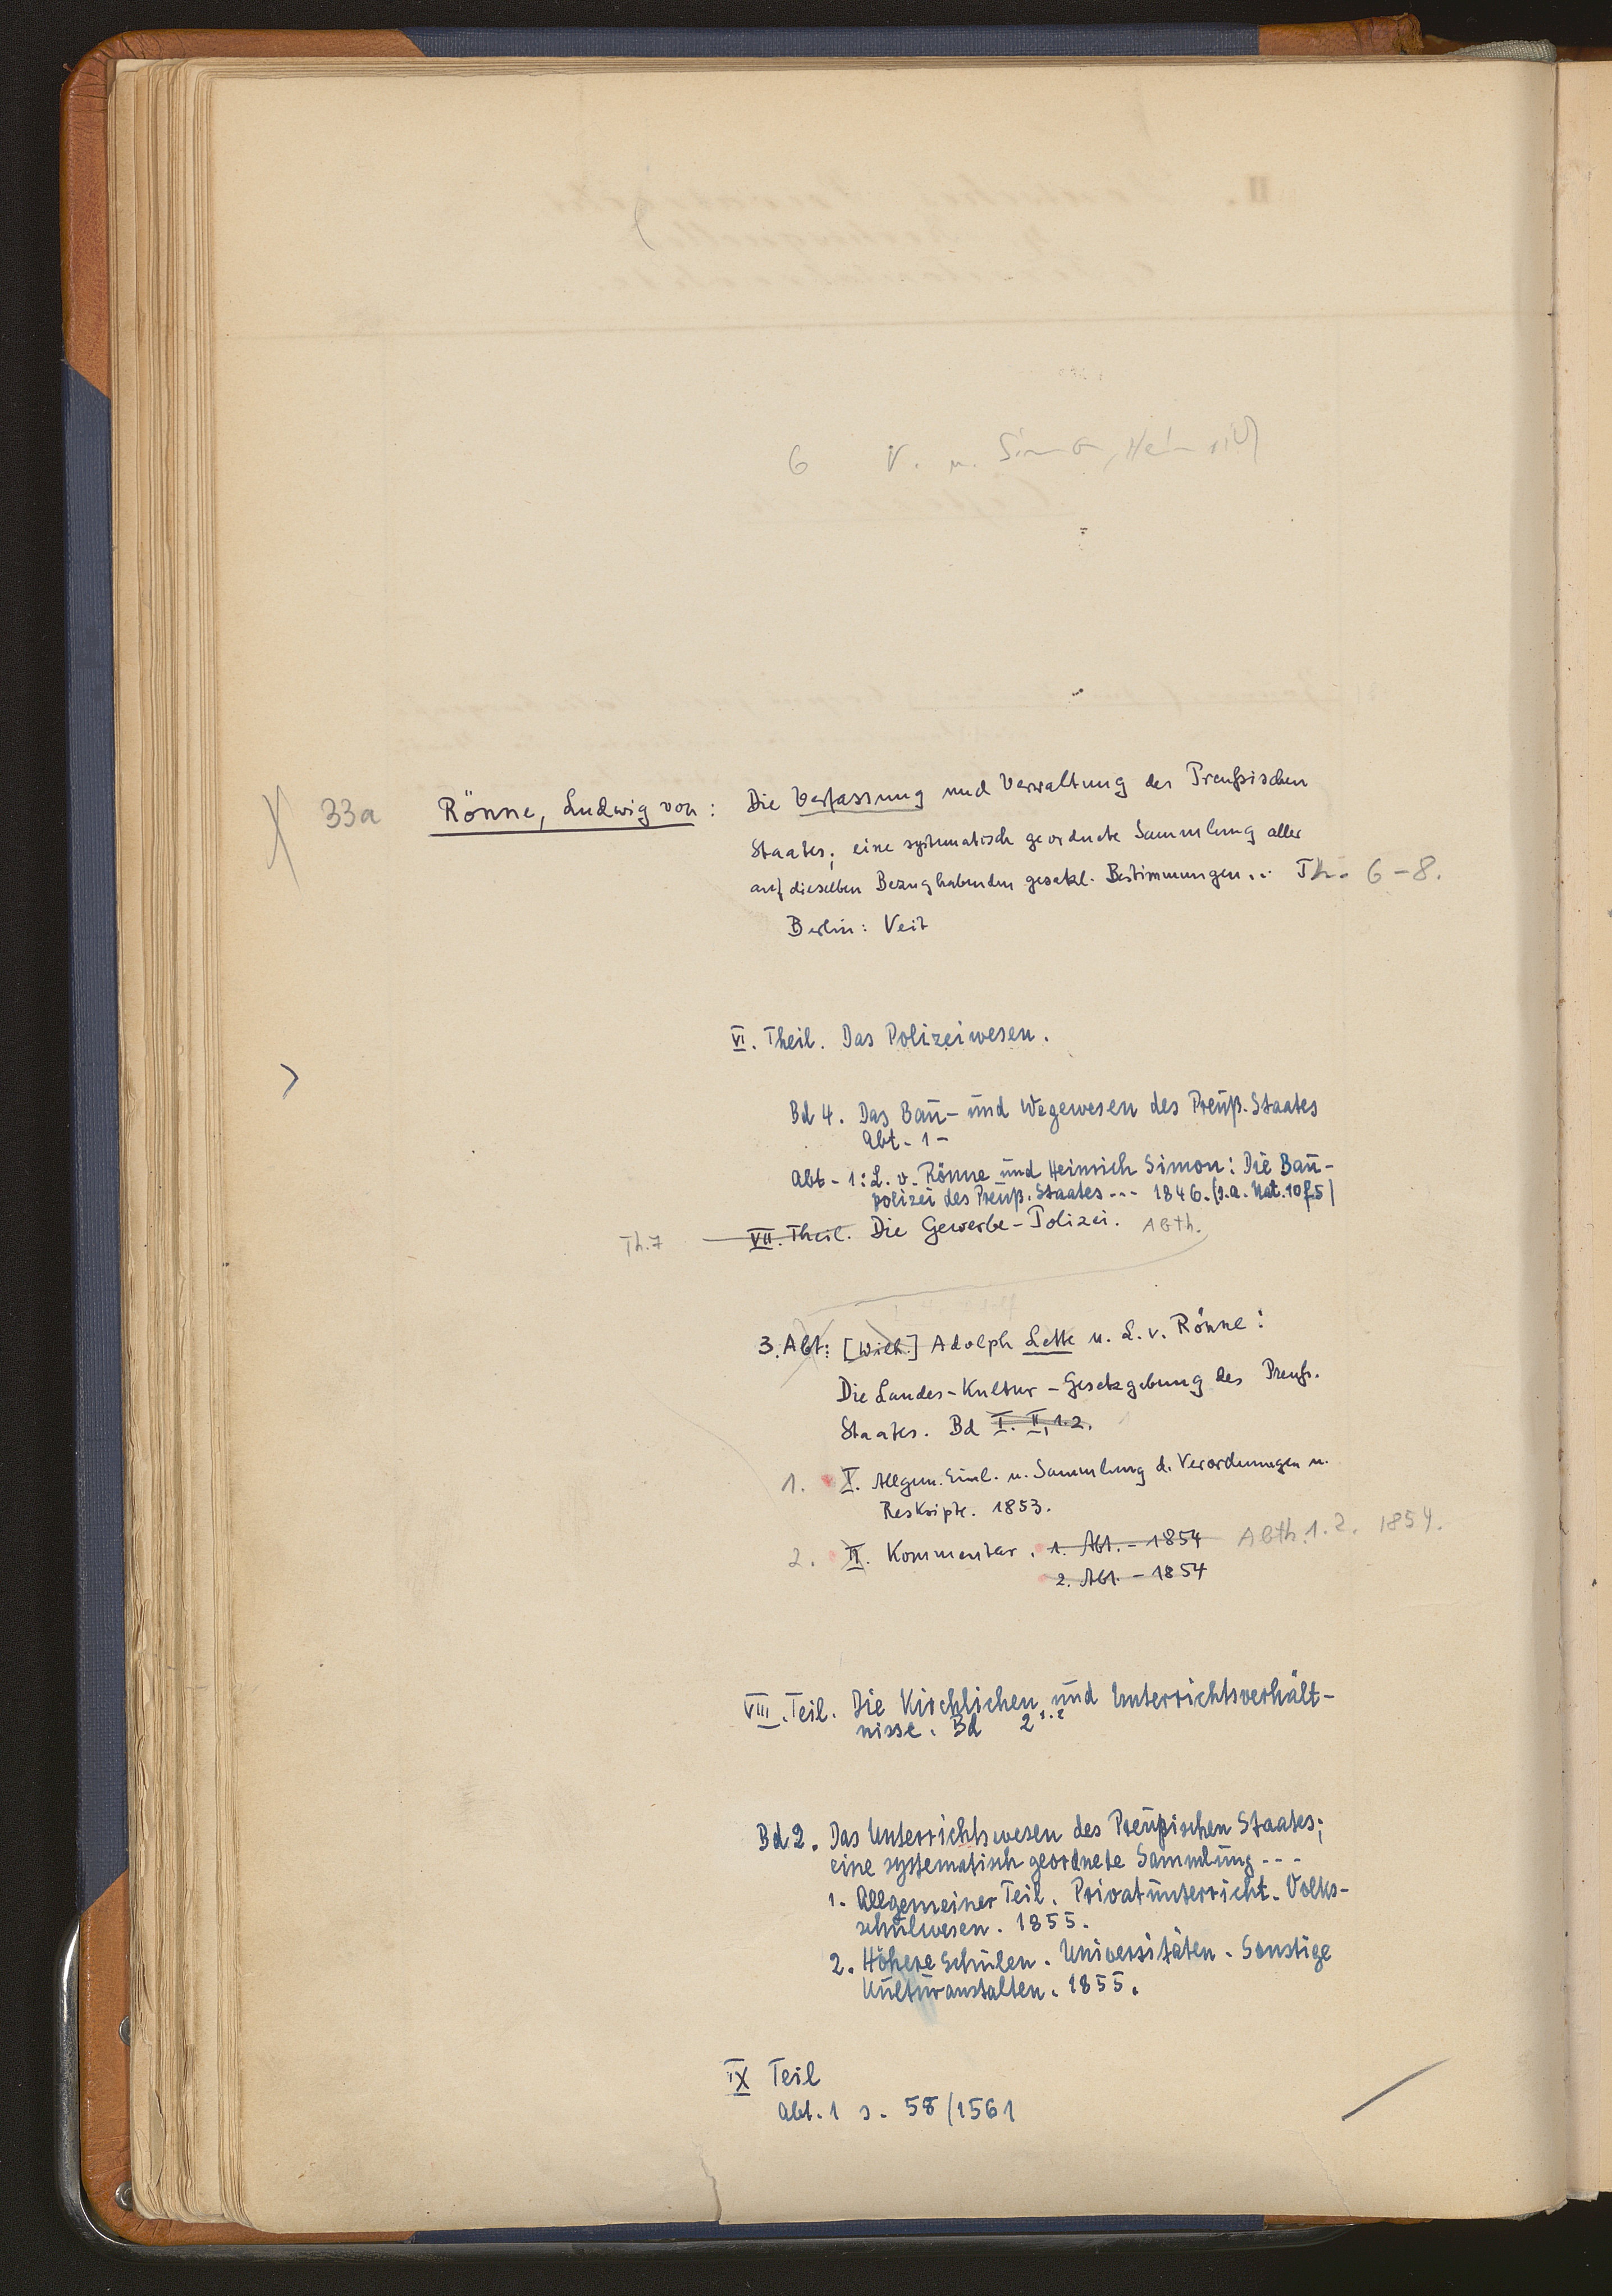 6 V. u. Simon, Heinrich
33a Rönne, Ludwig von: Die Verfassung und Verwaltung des Preußischen
Staates; eine systematisch geordnete Sammlung aller
auf dieselben Bezug habenden gesetzl. Bestimmungen... Th. 6-8.
Berlin: Veit
VI. Theil. Das Polizeiwesen.
Bd 4. Das Bau- und Wegewesen des Preuß. Staates
Abt. 1-
Abt. 1: L. v. Rönne und Heinrich Simon: Die Bau-
polizei des Preuß. Staates --- 1846. (s.a. Nat. 10f5)
Th. 7 VII. Theil. Die Gewerbe-Polizei. Abth.
3. Abt: [Wilh.] Adolph Lette u. L. v. Rönne:
Die Landes-Kultur-Gesetzgebung des Preuß.
Staates. Bd I. II, 1.2.
1. I. Allgem. Einl. u. Sammlung d. Verordnungen u.
Reskripte. 1853.
2. II. Kommentar. 1. Abt. - 1854 Abth. 1.2. 1854.
2. Abt. - 1854
VIII. Teil. Die Kirchlichen und Unterrichtsverhält-
nisse. Bd 2 1.2
Bd 2. Das Unterrichtswesen des Preußischen Staates;
eine systematisch geordnete Sammlung ---
1. Allgemeiner Teil. Privatunterricht. Volks-
schulwesen. 1855.
2. Höhere Schulen. Universitäten. Sonstige
Kulturanstalten. 1855.
IX Teil
Abt. 1 s. 58/1561